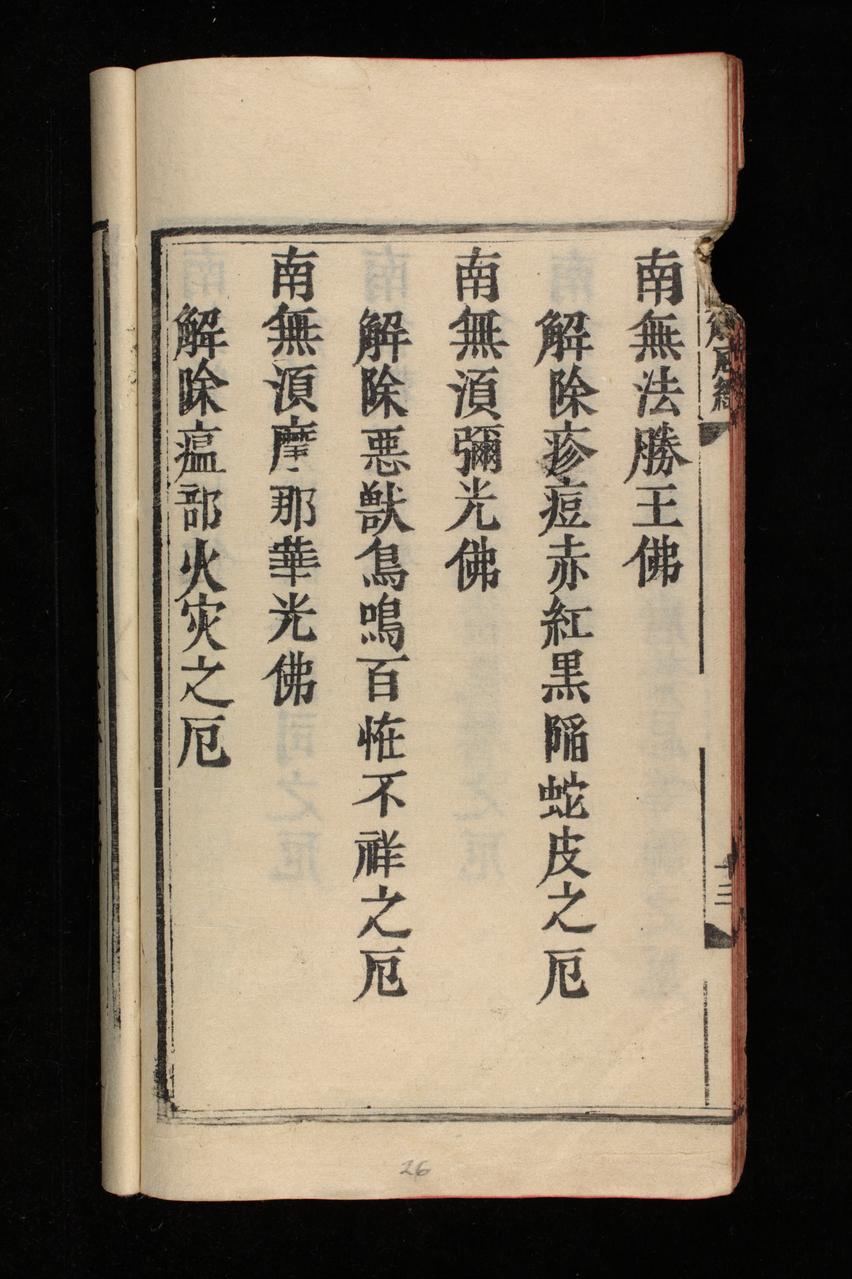 南無法勝王佛
解除疹痘赤紅黑陷蛇皮之厄
南無湏彌光佛
解除惡獸鳥鳴百恠不祥之厄
南無湏摩那華光佛
解除瘟部火灾之厄
解厄經
十三
26